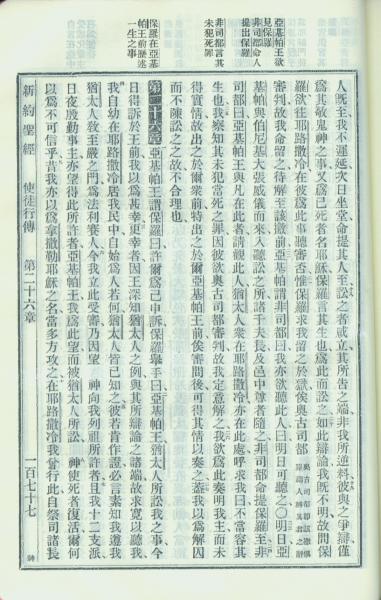 亞基帕王欲
見保羅
非司都命人
提出保羅
非司都言其
未犯死罪
保羅在亞基
帕王前歷述
一生之事
人既至我不遲延次日坐堂命提其人至訟之者咸立其所告之端非我所逆料彼與之爭辯僅
爲其敬鬼神之事又爲已死者名耶穌保羅言其生也爲此而訟之如此辯論我既不明故問保
羅欲往耶路撒冷在彼爲此事聽審否惟保羅求我留之於獄俟奧古司都
審判故我命留之待解至該撒前亞基帕謂非司都曰我亦欲聽此人曰明日可聽之○明日亞
基帕與伯尼基大張威儀而來入聽訟之所諸千夫長及邑中尊者隨之非司都命提保羅至非
司都曰亞基帕王與凡在此者請觀此人猶太人衆在耶路撒冷亦在此處呼求我曰不當容其
生也我察知其未犯當死之罪因彼欲奧古司都審判故我定意解之我欲爲此奏明我主而未
得實情故出之於爾衆前特出之於爾亞基帕王前俟審問後可得其情以奏之蓋我以爲解囚
而不陳訟之之故不合理也
第二十六章 亞基帕王謂保羅曰許爾爲己申訴保羅舉手曰亞基帕王猶太人所訟我之事今
日得訴於王前我以爲甚幸更幸者因王深知猶太人之例與其所辯論之諸端故求寬以聽我
我自幼在耶路撒冷居我民中自始爲人若何猶太人皆已知之彼若肯作證必言素知我遵我
猶太人敎至嚴之門爲法利賽人今我立此受審乃因望 神向我列祖所許者且我十二支派
日夜殷勤事主亦望得此所許者亞基帕王我爲此望而被猶太人所訟 神使死者復活爾何
以爲不可信乎昔我亦以爲拿撒勒耶穌之名當多方攻之在耶路撒冷我曾行此自祭司諸長
新約聖經 使徒行傳 第二十六章 一百七十七 神